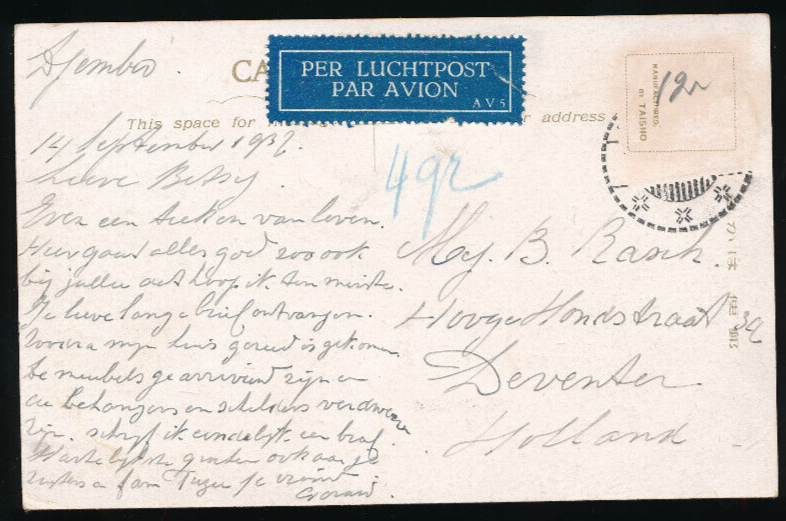 Djember.
CA
PER LUCHTPOST
PAR AVION
AV5
This space for
address
MANUFACTURED.
BY TAISHO
12½
14 September 1937.
Lieve Betsy.
Even een teeken van leven.
Hier gaat alles goed zoo ook
bij jullie dat hoop ik ten minste.
Je lieve lange brief ontvangen.
Zoodra mijn huis gereed is gekomen
de meubels gearriveerd zijn en
de behangers en schilders verdwenen
zijn. schrijf ik eindelijk een brief.
Hartelijkste groeten ook aan je
zusters en fam je vriend
Gerard.
Mej. B. Rasch.
Hooge Hondstraat 39
Deventer
Holland